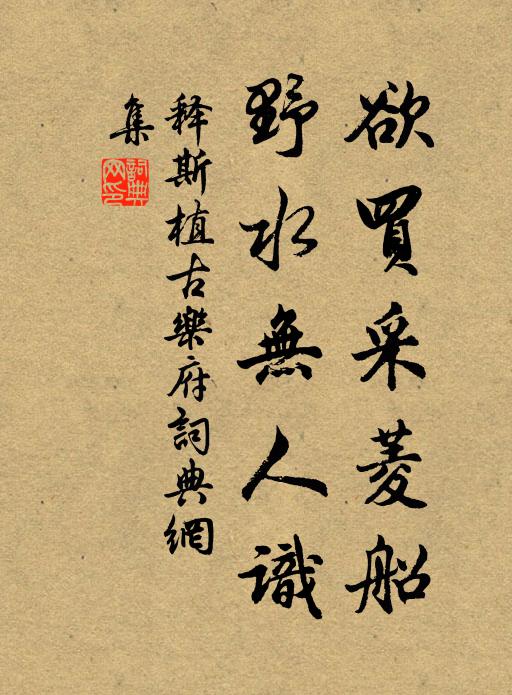 欲買采菱船
野水無人識
释斯植古樂府詞典網
集
詞典網印